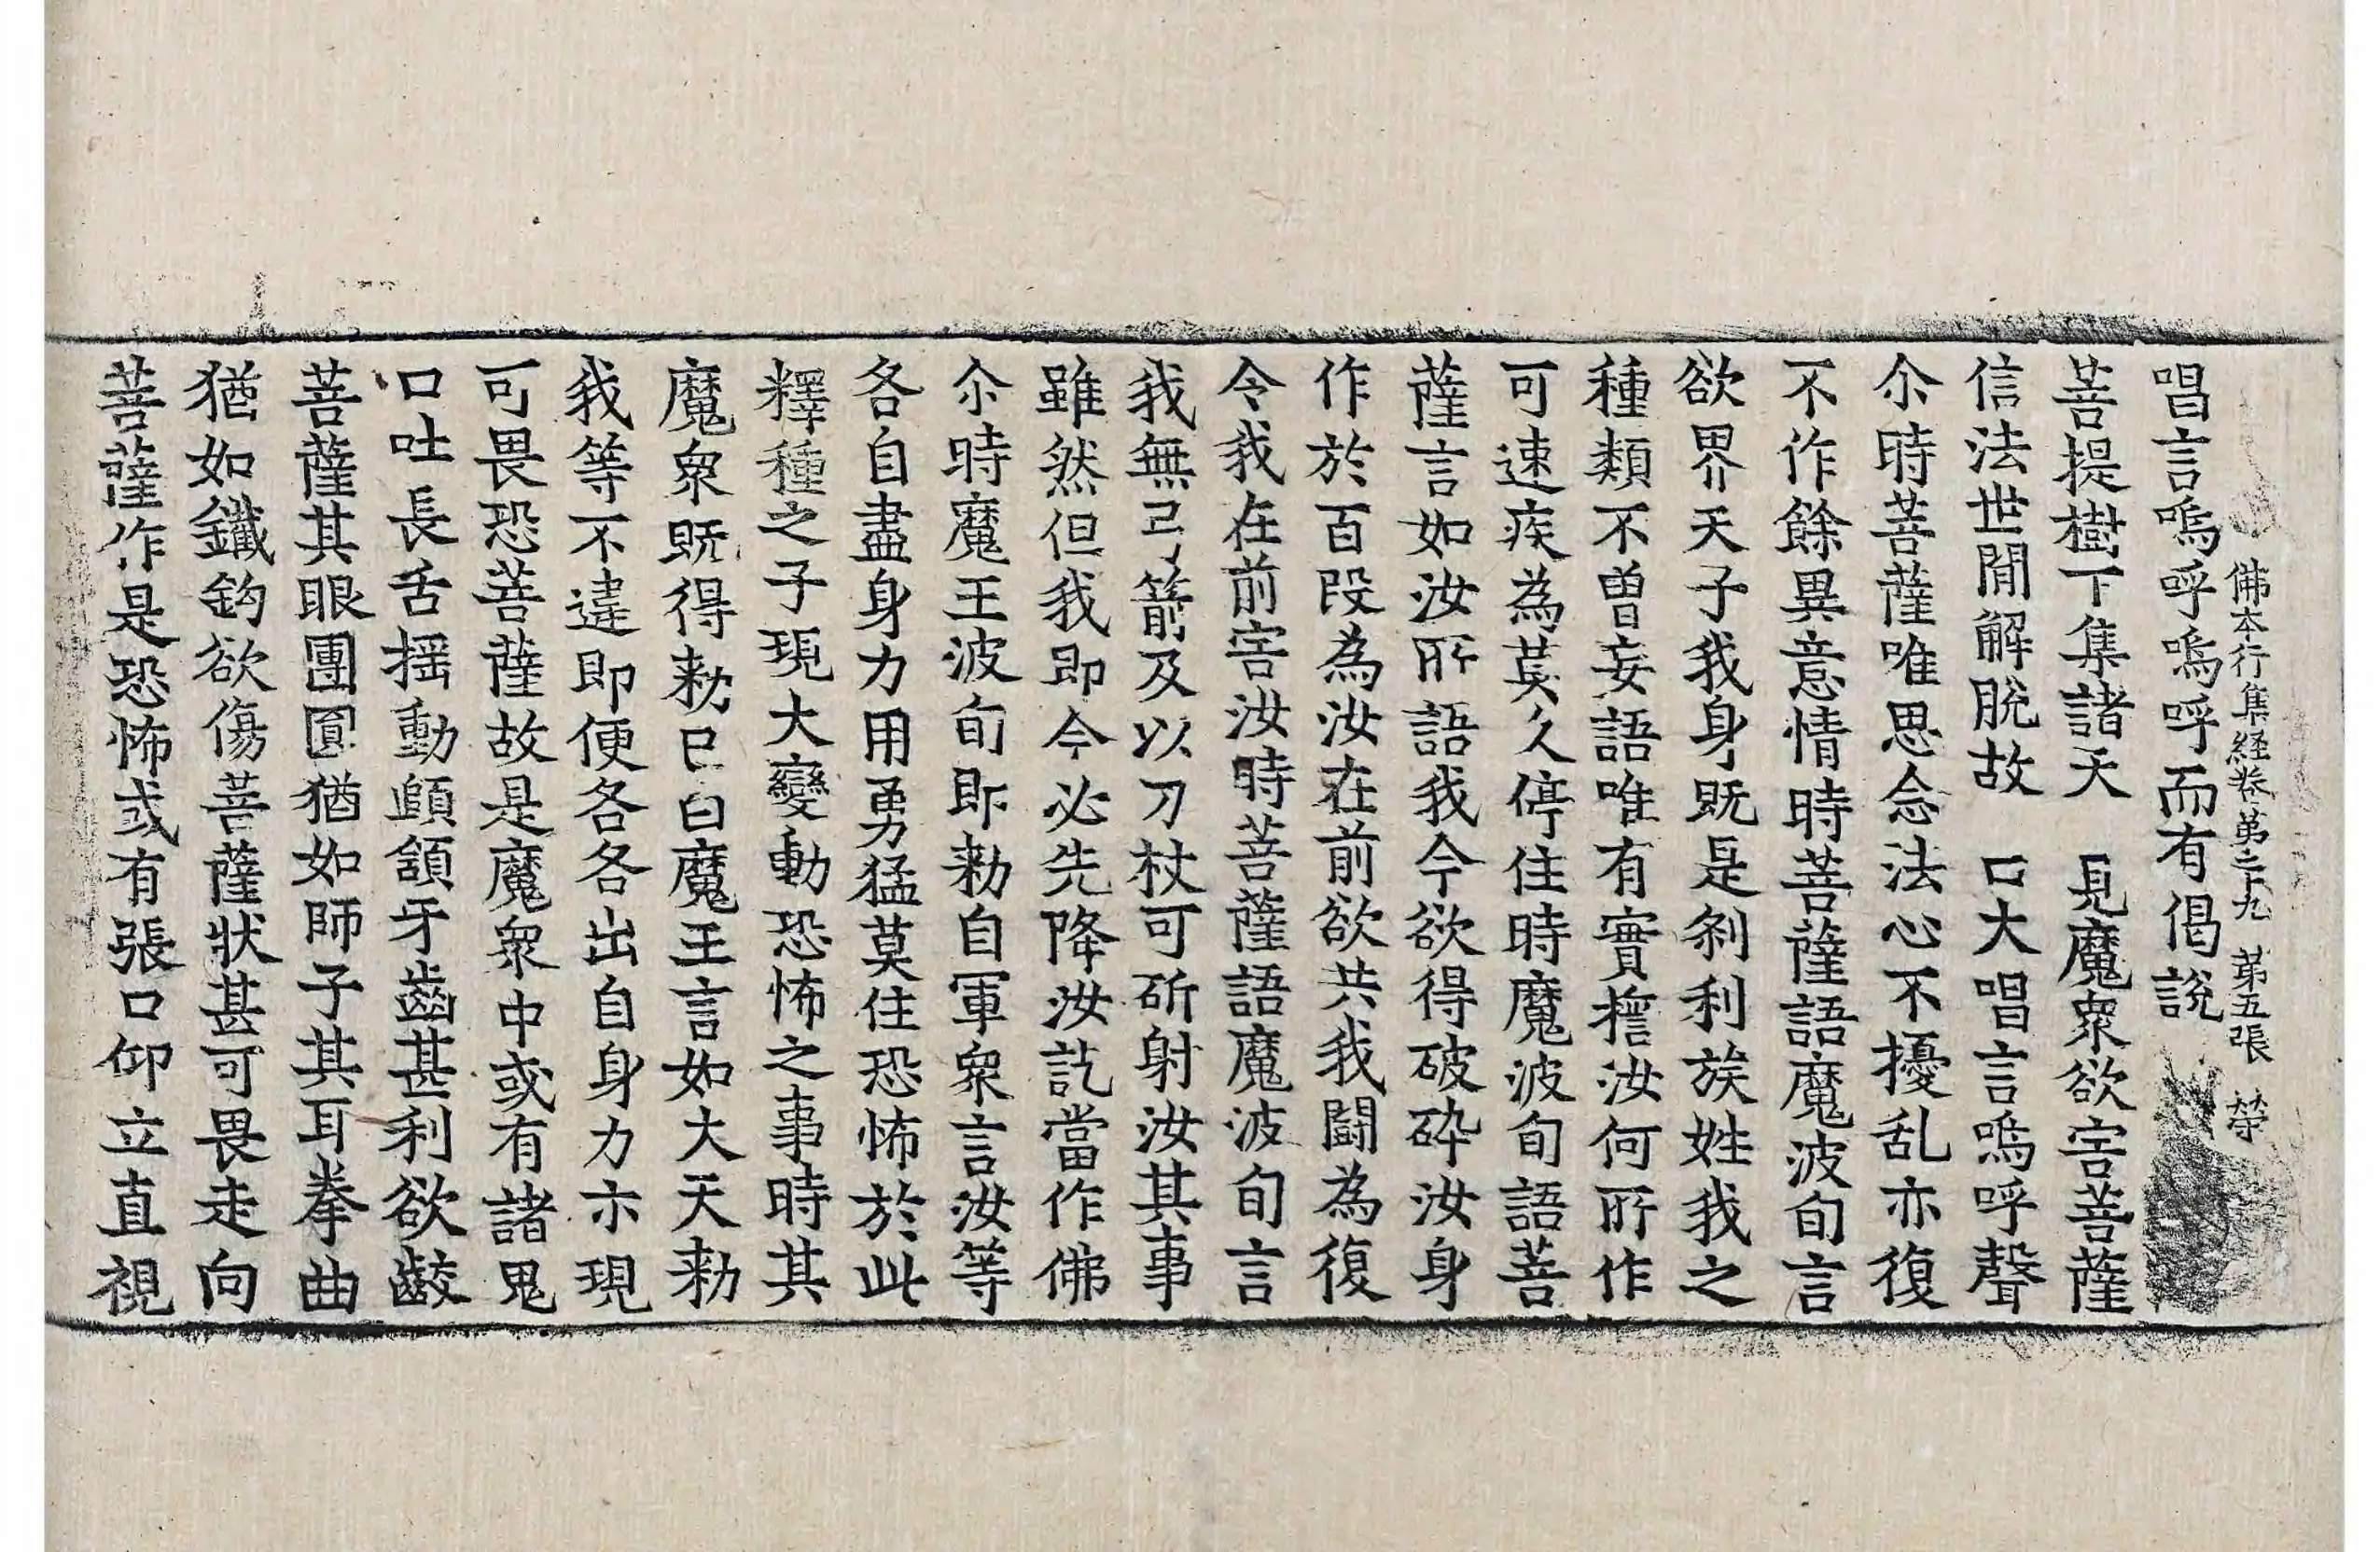 佛本行集経卷第二十九 第五張 荣
唱言嗚呼嗚呼而有偈說
菩提樹下集諸天 見魔衆欲害菩薩
信法世閒解脫故 口大唱言嗚呼聲
尒時菩薩唯思念法心不擾乱亦復
不作餘異意情時菩薩語魔波旬言
欲界天子我身既是刹利族姓我之
種類不曽妄語唯有實擔汝何所作
可速疾為莫久停住時魔波旬語菩
薩言如汝所語我今欲得破碎汝身
作於百段為汝在前欲共我鬪為復
令我在前害汝時菩薩語魔波旬言
我無弓箭及以刀杖可斫射汝其事
雖然但我即今必先降汝訖當作佛
尒時魔王波旬即勑自軍衆言汝等
各自盡身力用勇猛莫住恐怖於此
釋種之子現大變動恐怖之事時其
魔衆既得勑已白魔王言如大天勑
我等不違即便各各出自身力亦現
可畏恐菩薩故是魔衆中或有諸鬼
口吐長舌揺動頗頷牙齒甚利欲齩
菩薩其眼團圓猶如師子其耳拳曲
猶如鐵鈎欲傷菩薩狀甚可畏走向
菩薩作是恐怖或有張口仰立直視